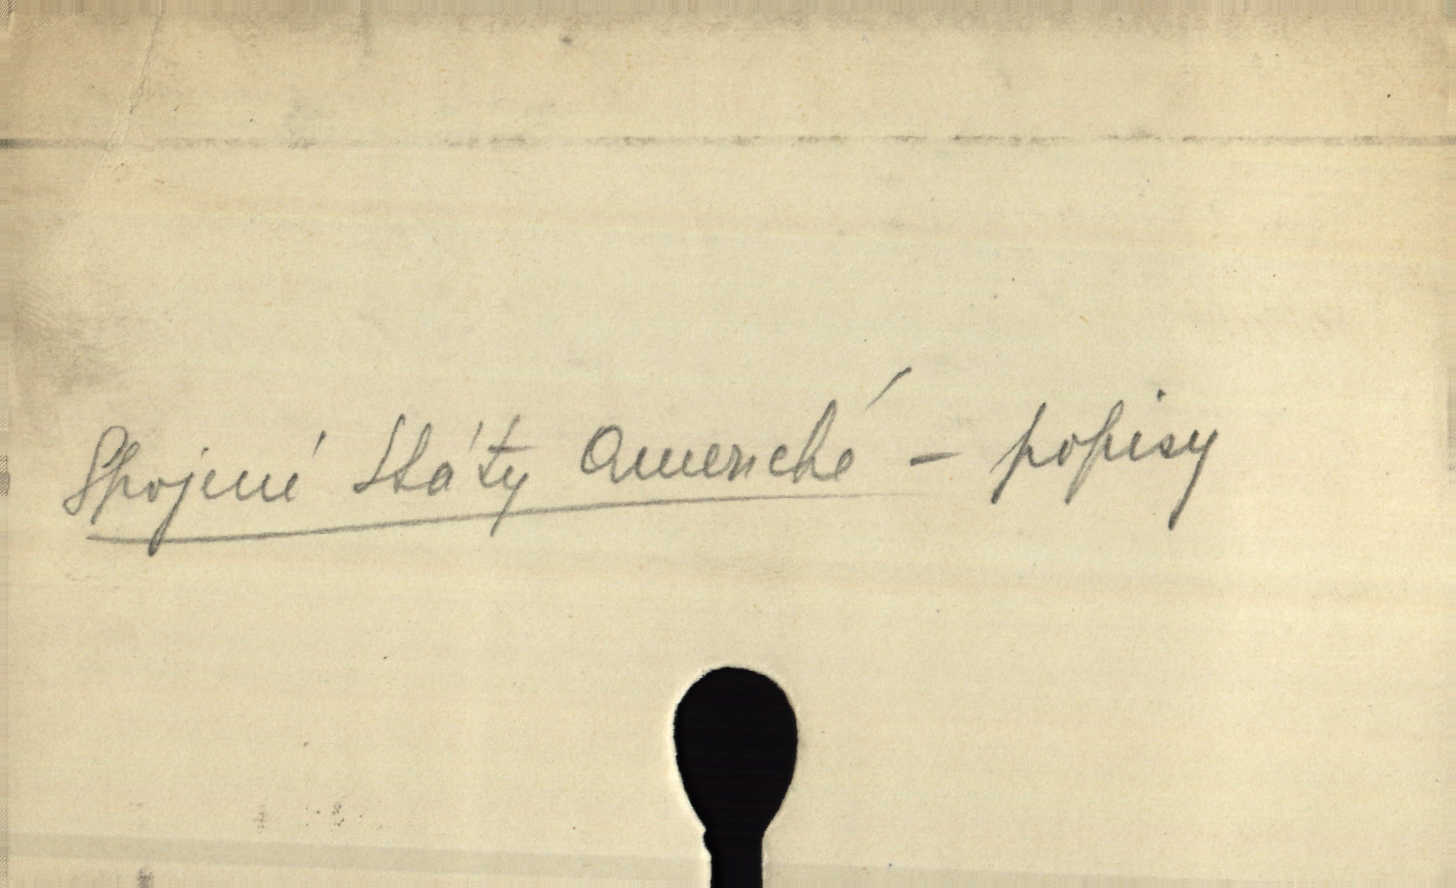 Spojené Státy Americké - popisy